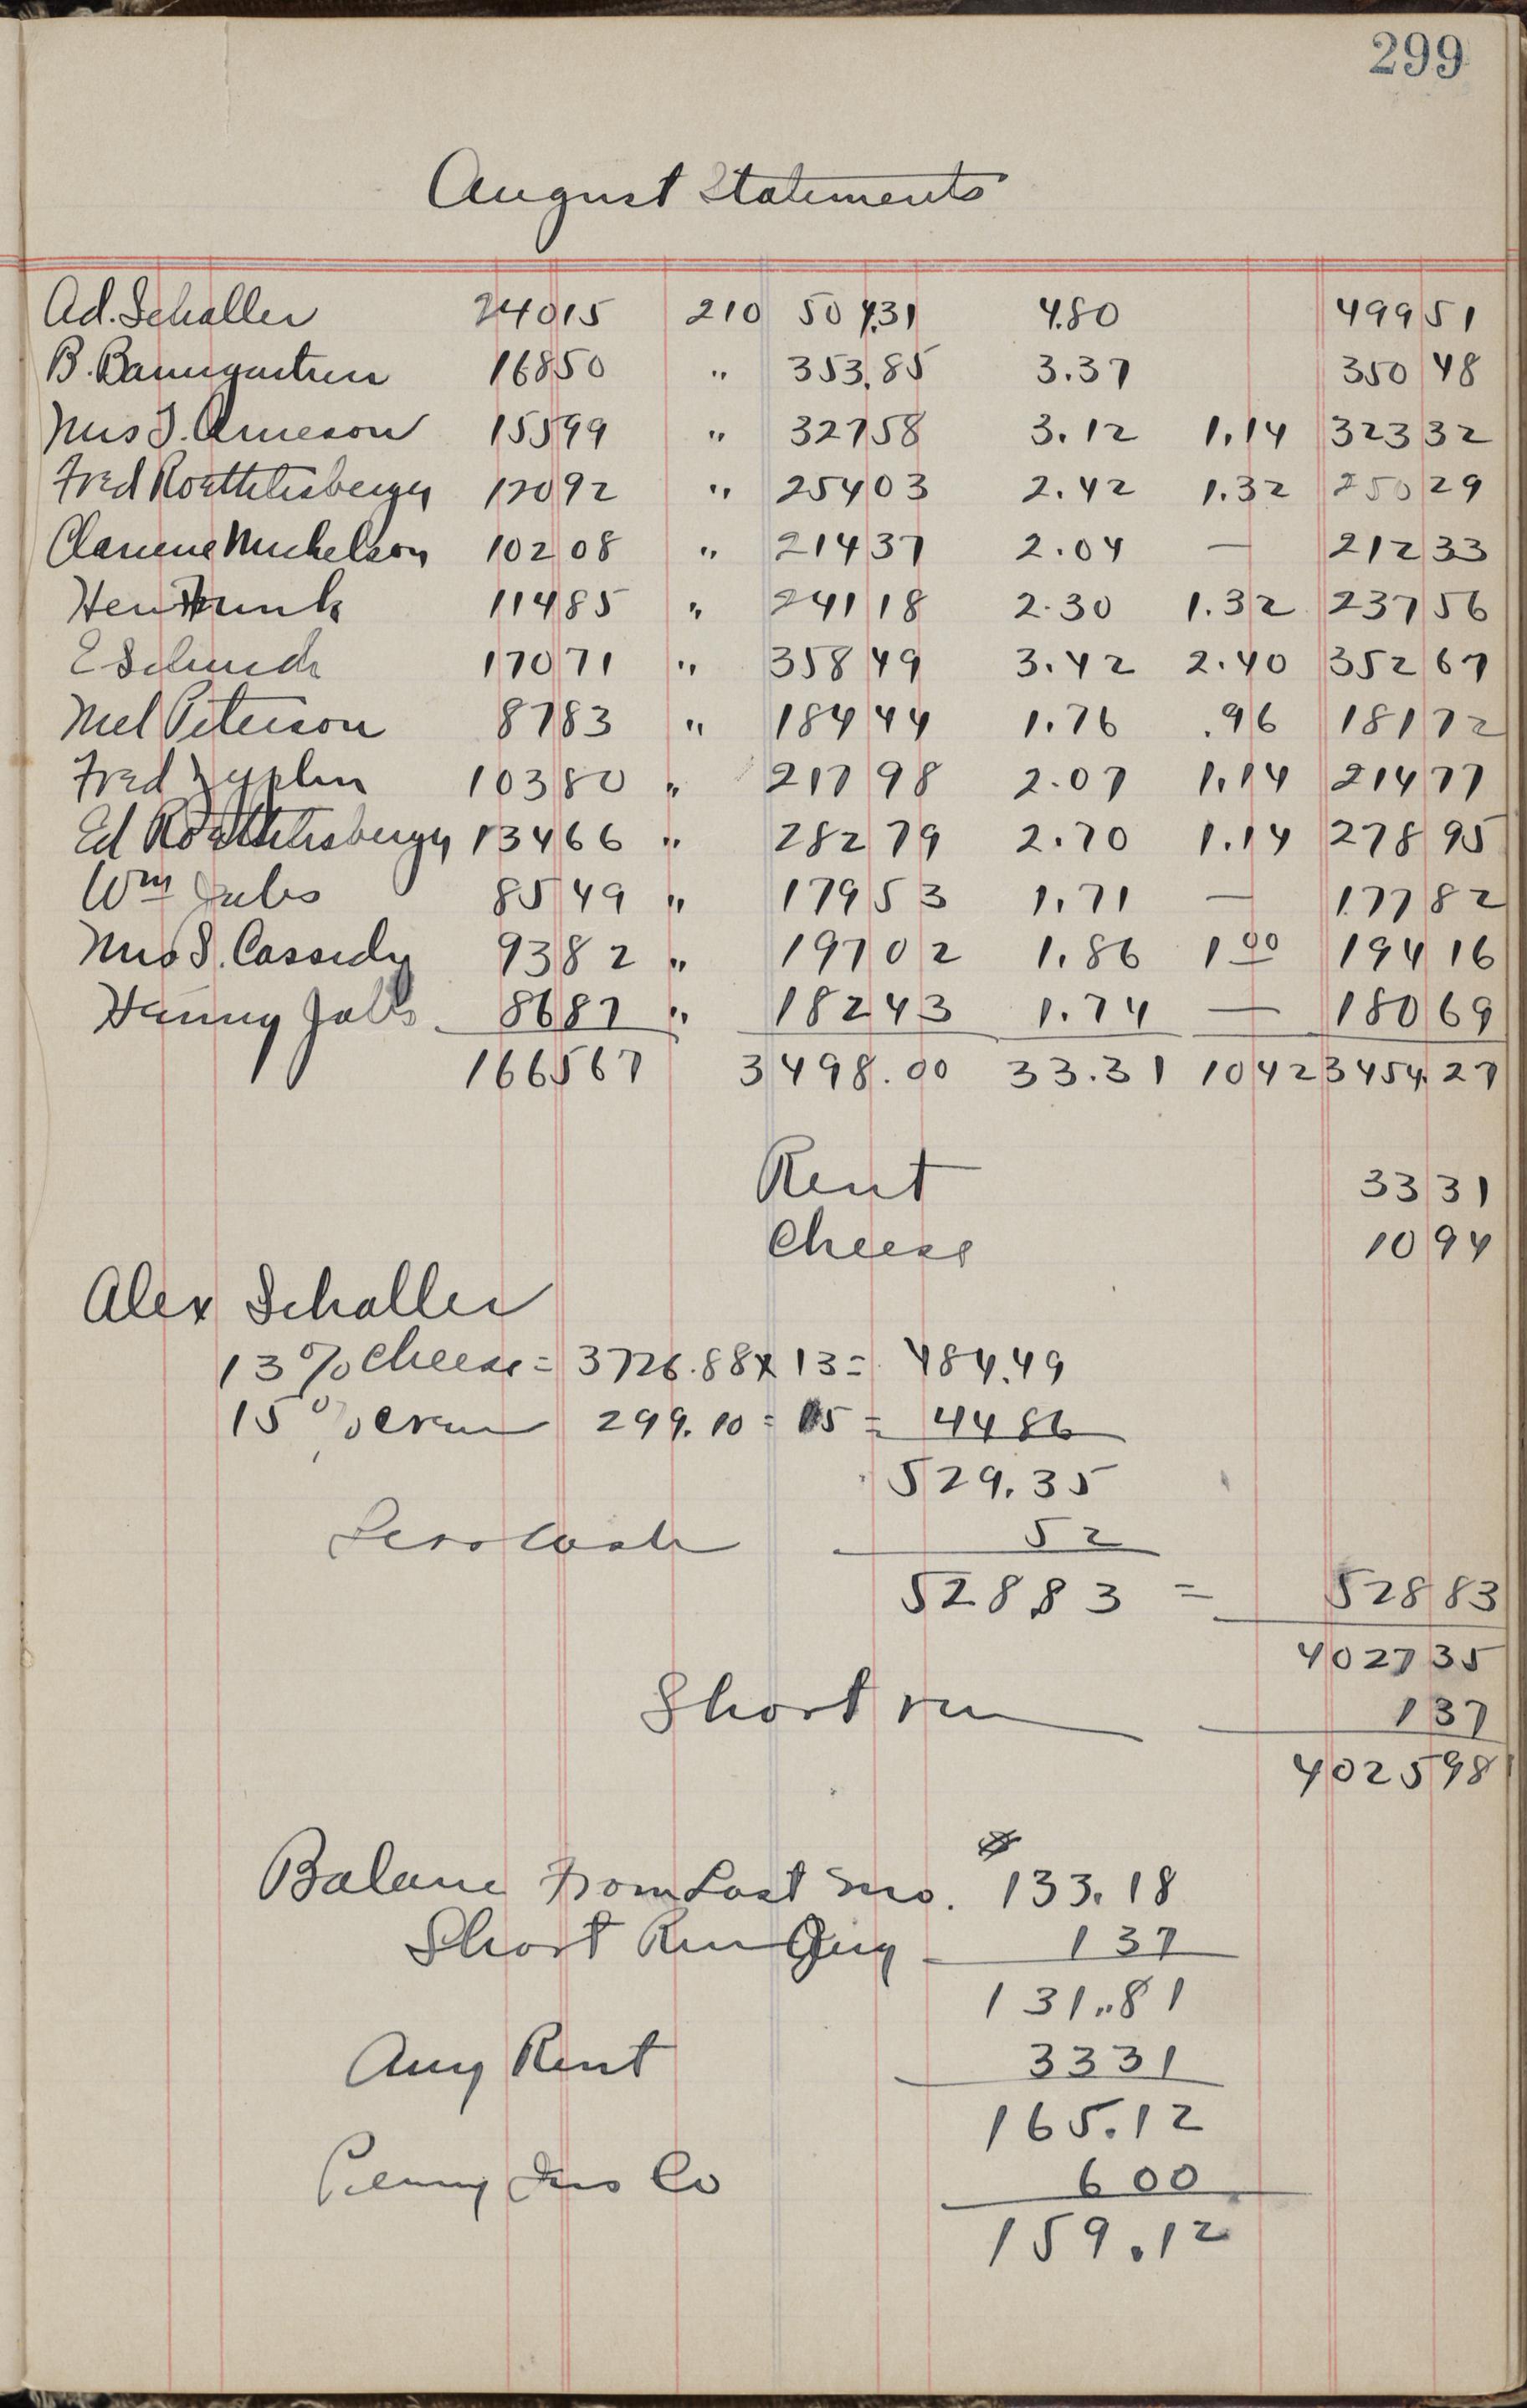 299
August Statements
Ad. Schaller 24015 210 504.31 4.80 499 51
B. Baumgartner 16850 " 353.85 3.37 350 48
Mrs T. Arneson 15599 " 327 58 3.12 1.14 323 32
Fred Roethlisberger 12092 " 254 03 2.42 1.32 250 29
Clarence Mickelson 10208 " 214 37 2.04 — 212 33
Hen Funk 11485 " 241 18 2.30 1.32 237 56
E 17071 " 358 49 3.42 2.40 352 67
Mel Peterson 8783 " 184 44 1.76 .96 181 72
Fred Zyplin 10380 " 217 98 2.07 1.14 214 77
Ed Roethlisberger 13466 " 282 79 2.70 1.14 278 95
Wm Jabs 8549 " 179 53 1.71 — 177 82
Mrs S. Cassidy 9382 " 197 02 1.86 1 00 194 16
Henry Jabs 8687 " 182 43 1.74 — 180 69
166567 3498.00 33.31 10 42 3454.27
Rent 33 31
Cheese 10 94
Alex Schaller
13% cheese = 3726.88 x 13 = 484.49
15% cream 299.10 = 15 = 44 86
529.35
Less Cash 52
528 83 = 528 83
4027 35
Short run 1 37
4025 98
Balance From Last mo. $ 133.18
Short Run Aug 1 37
131.81
Aug Rent 33 31
165.12
Ins Co 6 00
159.12